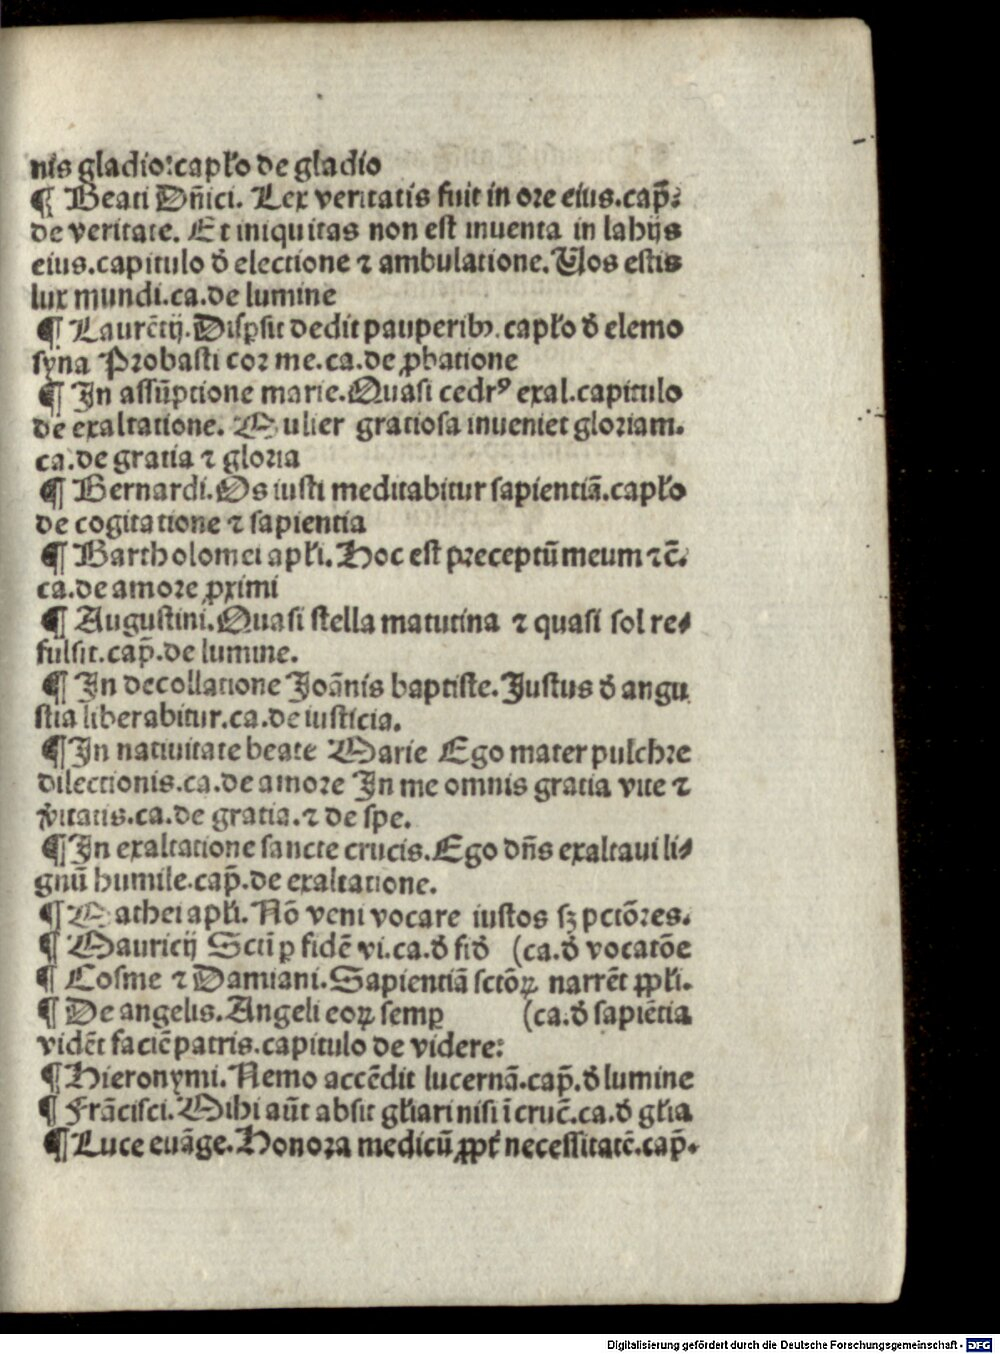 nis gladio:capło de gladio
¶ Beati Dñici. Lex veritatis fuit in ore eius.cap̃:
de veritate. Et iniquitas non est inuenta in labijs
eius.capitulo ð electione ⁊ ambulatione. Uos estis
lux mundi.ca.de lumine
¶ Laurẽtij. Disꝑsit dedit pauperibꝫ. capło ð elemo
syna Probasti cor me.ca.de ꝓbatione
¶ In assũptione marie. Quasi cedrꝰ exal.capitulo
de exaltatione. Mulier gratiosa inueniet gloriam.
ca.de gratia ⁊ gloria
¶ Bernardi. Os iusti meditabitur sapientiã.capło
de cogitatione ⁊ sapientia
¶ Bartholomei apłi. Hoc est preceptũ meum ⁊c̃.
ca.de amore ꝓximi
¶ Augustini. Quasi stella matutina ⁊ quasi sol re⸗
fulsit.cap̃.de lumine.
¶ In decollatione Joãnis baptiste. Justus ð angu
stia liberabitur.ca.de iusticia.
¶ In natiuitate beate Marie Ego mater pulchre
dilectionis.ca.de amore In me omnis gratia vite ⁊
v̾itatis.ca.de gratia.⁊ de spe.
¶ In exaltatione sancte crucis. Ego dñs exaltaui li⸗
gnũ humile.cap̃.de exaltatione.
¶ Mathei apłi. Nõ veni vocare iustos sꝫ pctõres.
¶ Mauricij Sctĩ ꝑ fidẽ vi.ca.ð fið (ca.ð vocatõe
¶ Cosme ⁊ Damiani. Sapientiã sctõꝝ narrẽt ꝓpłi.
¶ De angelis. Angeli eoꝝ semꝑ (ca.ð sapiẽtia
vidẽt faciẽ patris.capitulo de videre:
¶ Hieronymi. Nemo accẽdit lucernã.cap̃.ð lumine
¶ Frãcisci. Mihi aũt absit głiari nisi ĩ cruc̃.ca.ð głia
¶ Luce euãge. Honora medicũ ꝓpt̃ necessitatẽ.cap̃.
Digitalisierung gefördert durch die Deutsche Forschungsgemeinschaft - DFG